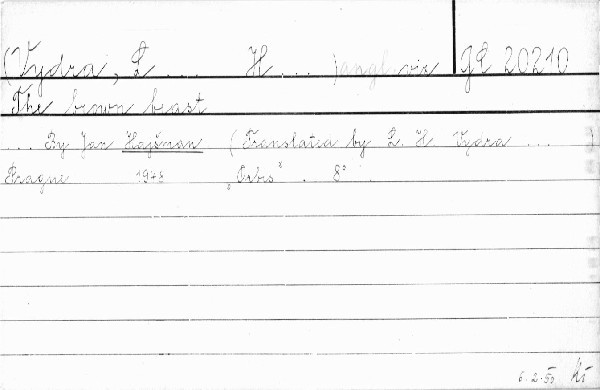 (Vydra, L .... H .... ) angl. viz GE 20210
The brown beast
... By Jan Hajšman (Translated by L. H. Vydra ... )
Prague 1948 „Orbis“ . 8° .
6.2.50 Kš